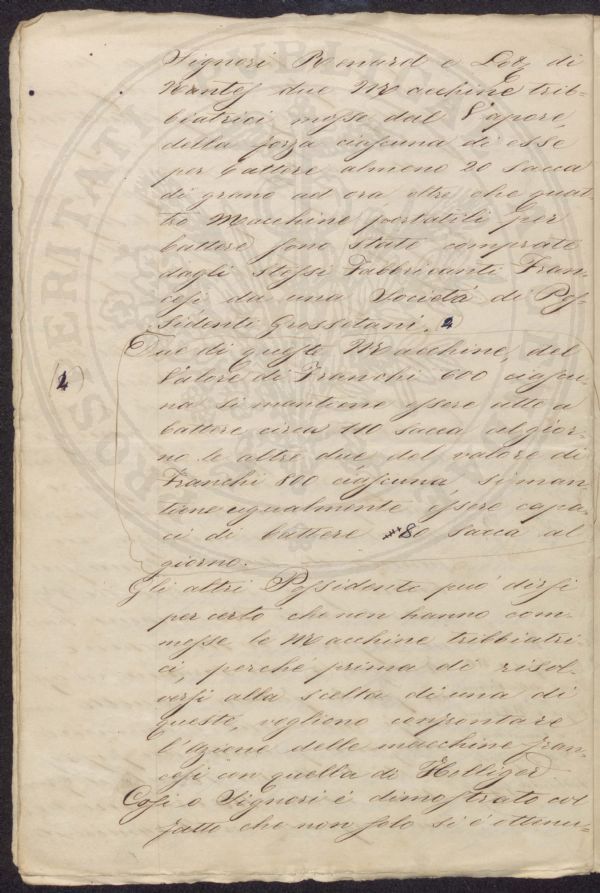 Signori Renard e Loz di
Nantes due Macchine trib=
biatrici mosse dal Vapore,
della forza ciascuna di esse
per battere almeno 20 sacca
di grano ad ora oltre che quat=
tro Macchine portatili per
battere sono state comprate
dagli stessi Fabbricanti Fran=
cesi da una Società di Pos=
sidenti Grossetani. 2)
Due di queste Macchine, del
Valore di Franchi 600 ciascu=
na si mantiene essere atte a
battere circa 110 sacca al gior=
no le altre due del valore di
Franchi 800 ciascuna si man=
tiene egualmente essere capa=
ci di battere 80 sacca al
giorno.
Gli altri Possidenti può dirsi
per certo che non hanno com=
messe le Macchine tribbiatri
ci, perchè prima di risol=
versi alla scelta di una di
queste, vogliono confrontare
l'azione delle macchine fran=
cesi con quella di
Così o Signori è dimostrato col
fatto che non solo si è ottenu=